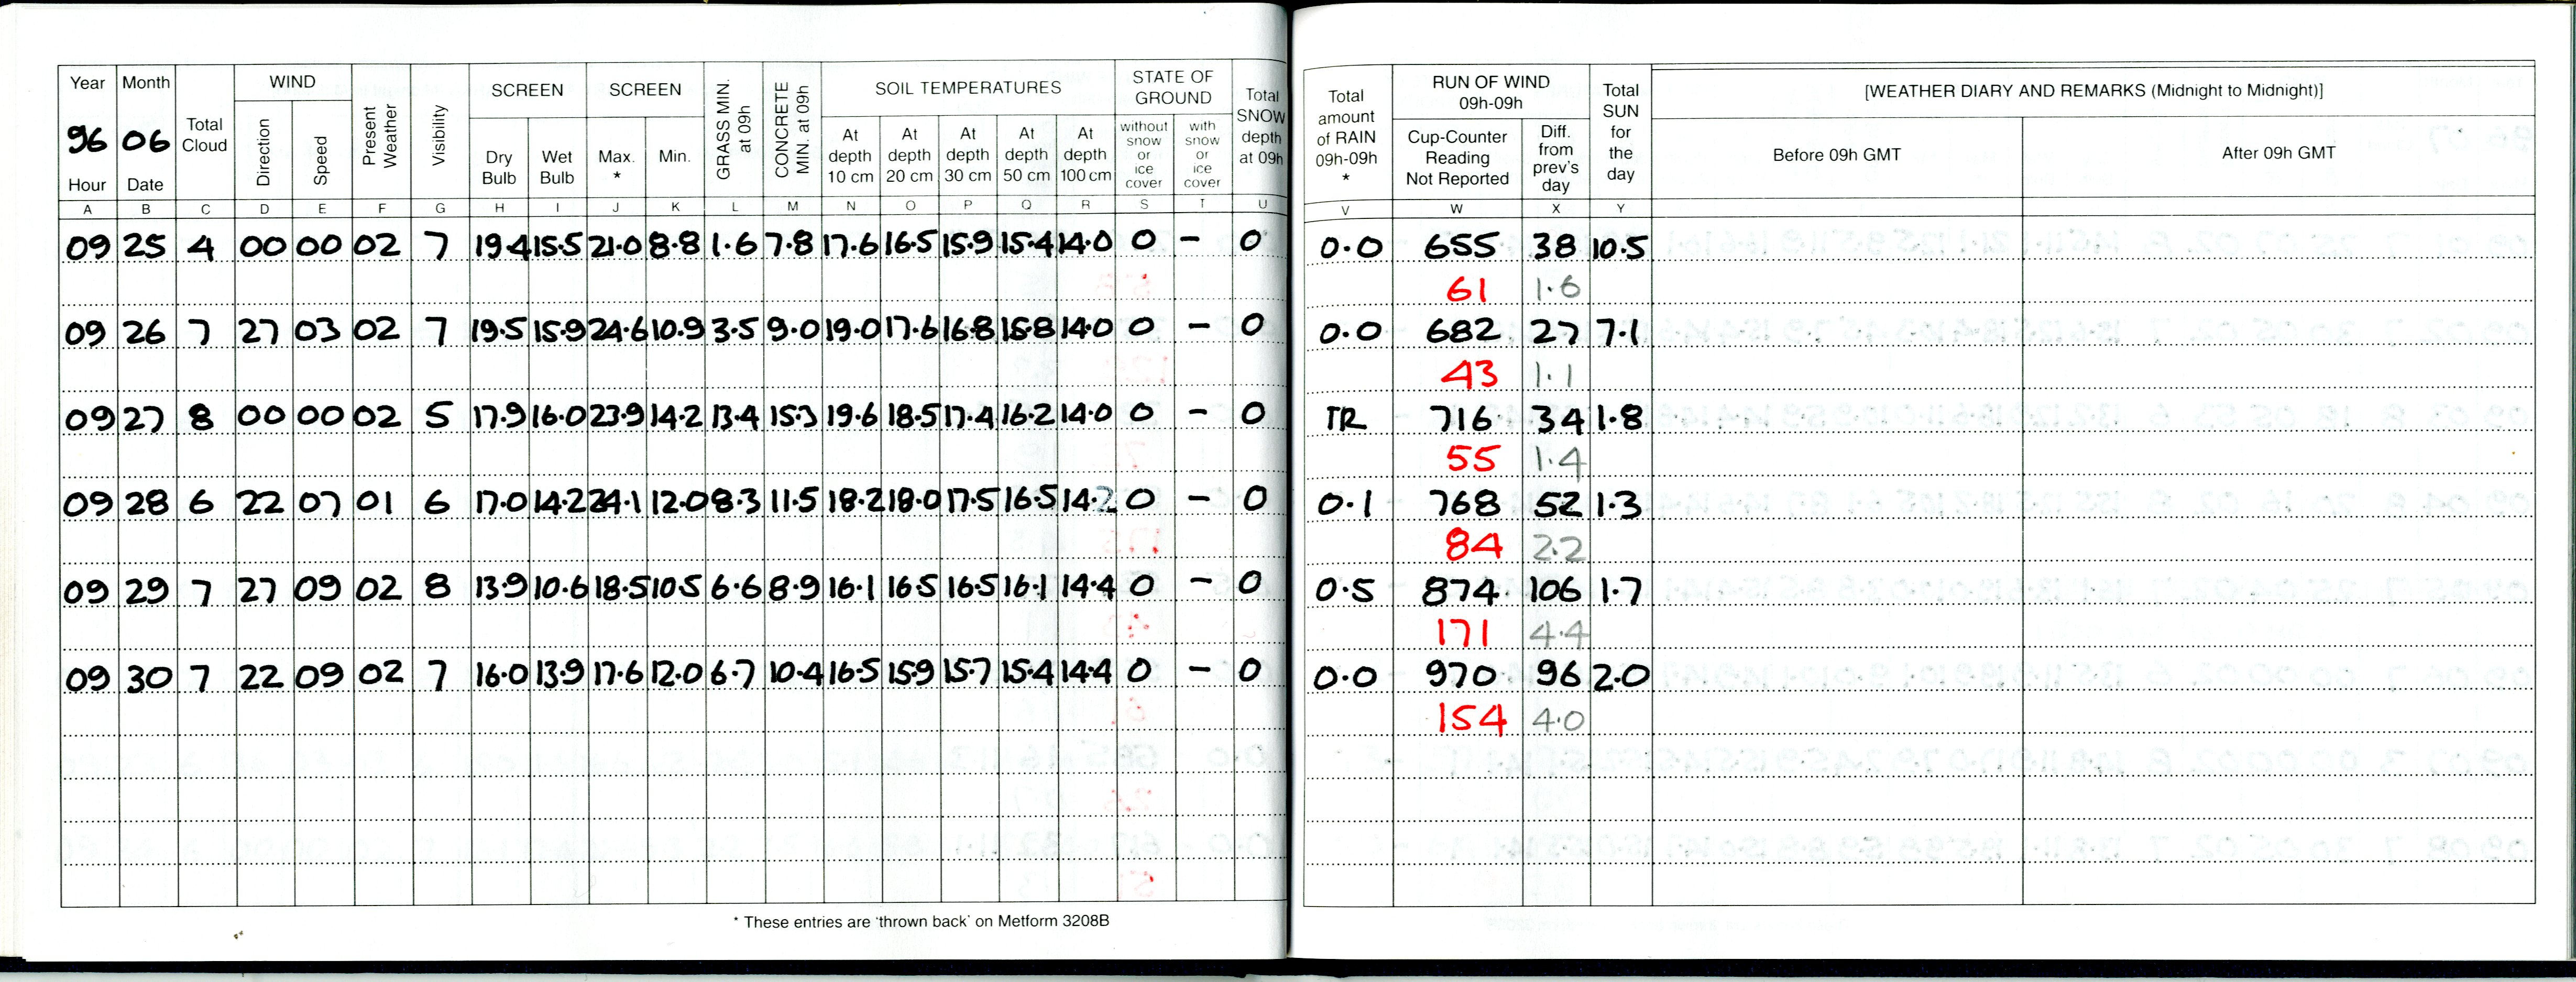 Year Month Total Cloud WIND Present Weather Visibility SCREEN SCREEN GRASS MIN. at 09h CONCRETE MIN. at 09h SOIL TEMPERATURES STATE OF GROUND Total SNOW depth at 09h
96 06 Direction Speed Dry Bulb Wet Bulb Max. * Min. At depth 10 cm At depth 20 cm At depth 30 cm At depth 50 cm At depth 100 cm without snow or ice cover with snow or ice cover
Hour Date
A B C D E F G H I J K L M N O P Q R S T U
09 25 4 00 00 02 7 19.4 15.5 21.0 8.8 1.6 7.8 17.6 16.5 15.9 15.4 14.0 0 – 0
09 26 7 27 03 02 7 19.5 15.9 24.6 10.9 3.5 9.0 19.0 17.6 16.8 15.8 14.0 0 – 0
09 27 8 00 00 02 5 17.9 16.0 23.9 14.2 13.4 15.3 19.6 18.5 17.4 16.2 14.0 0 – 0
09 28 6 22 07 01 6 17.0 14.2 24.1 12.0 8.3 11.5 18.2 18.0 17.5 16.5 14.2 0 – 0
09 29 7 27 09 02 8 13.9 10.6 18.5 10.5 6.6 8.9 16.1 16.5 16.5 16.1 14.4 0 – 0
09 30 7 22 09 02 7 16.0 13.9 17.6 12.0 6.7 10.4 16.5 15.9 15.7 15.4 14.4 0 – 0
* These entries are 'thrown back' on Metform 3208B
Total amount of RAIN 09h-09h * RUN OF WIND 09h-09h Total SUN for the day [WEATHER DIARY AND REMARKS (Midnight to Midnight)]
Cup-Counter Reading Not Reported Diff. from prev's day Before 09h GMT After 09h GMT
V W X Y
0.0 655 38 10.5
61 1.6
0.0 682 27 7.1
43 1.1
TR 716 34 1.8
55 1.4
0.1 768 52 1.3
84 2.2
0.5 874 106 1.7
171 4.4
0.0 970 96 2.0
154 4.0